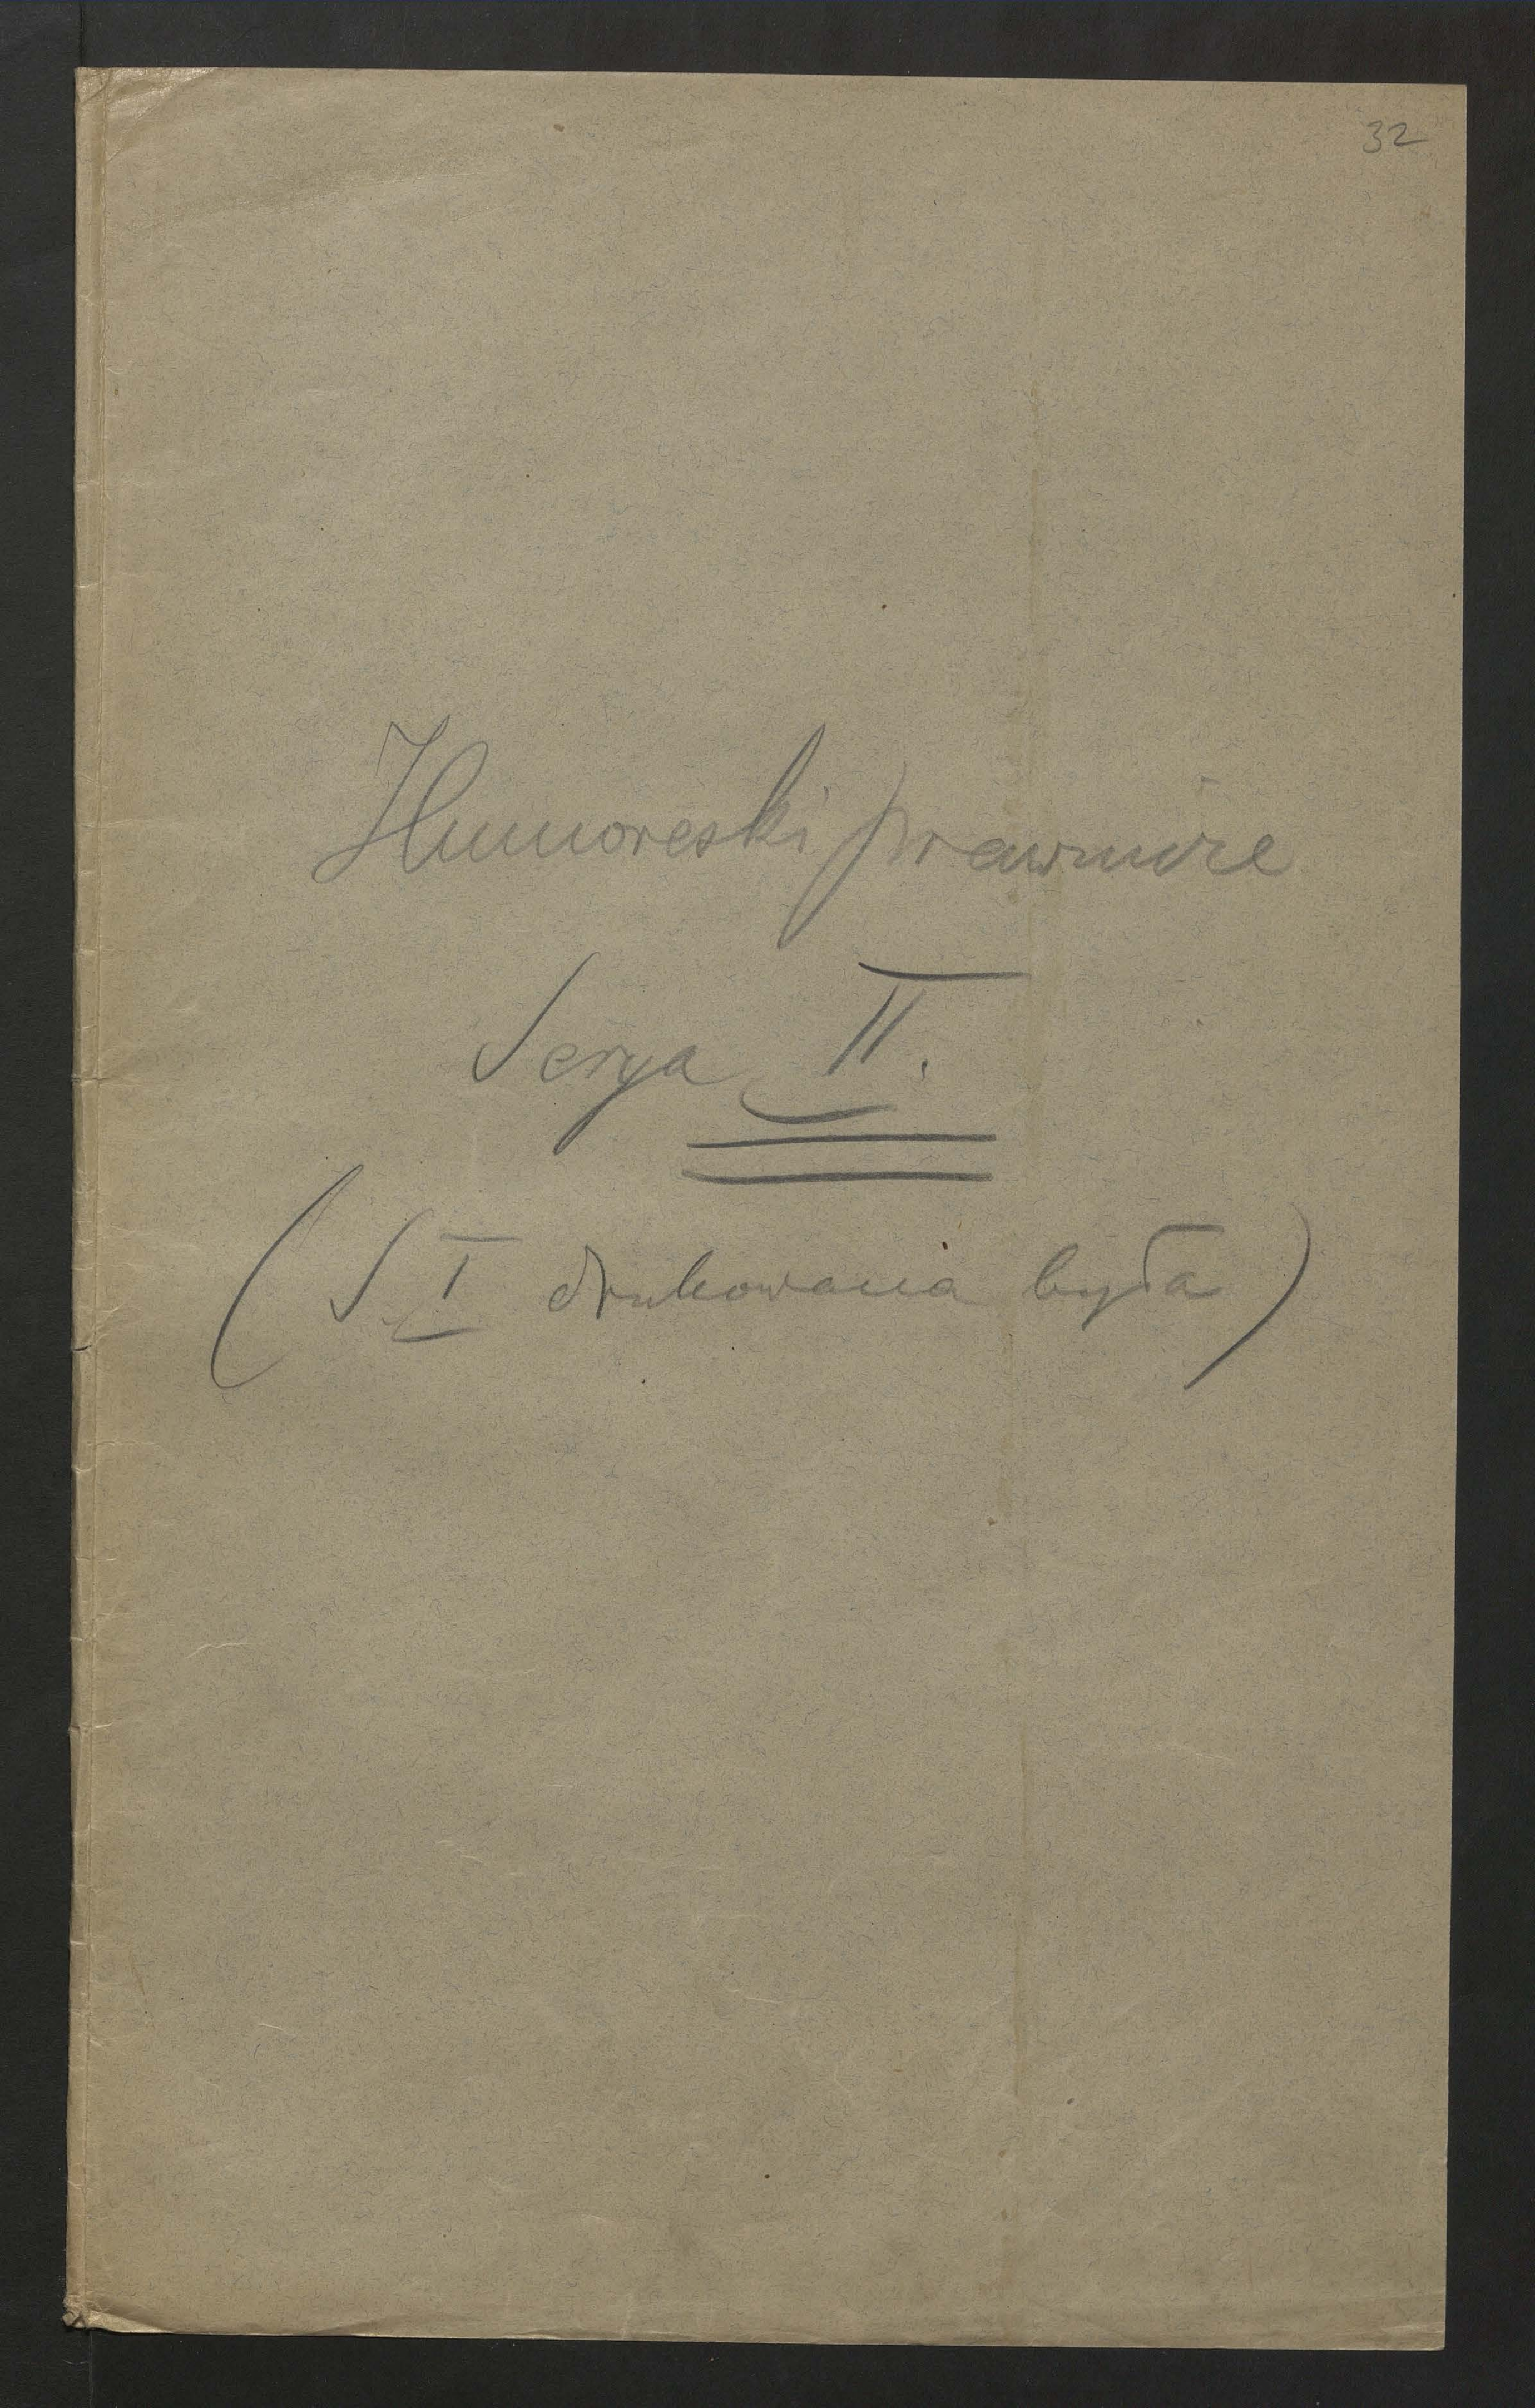 32
Humoreski prawnicze
Serya II.
(S I drukowana była)